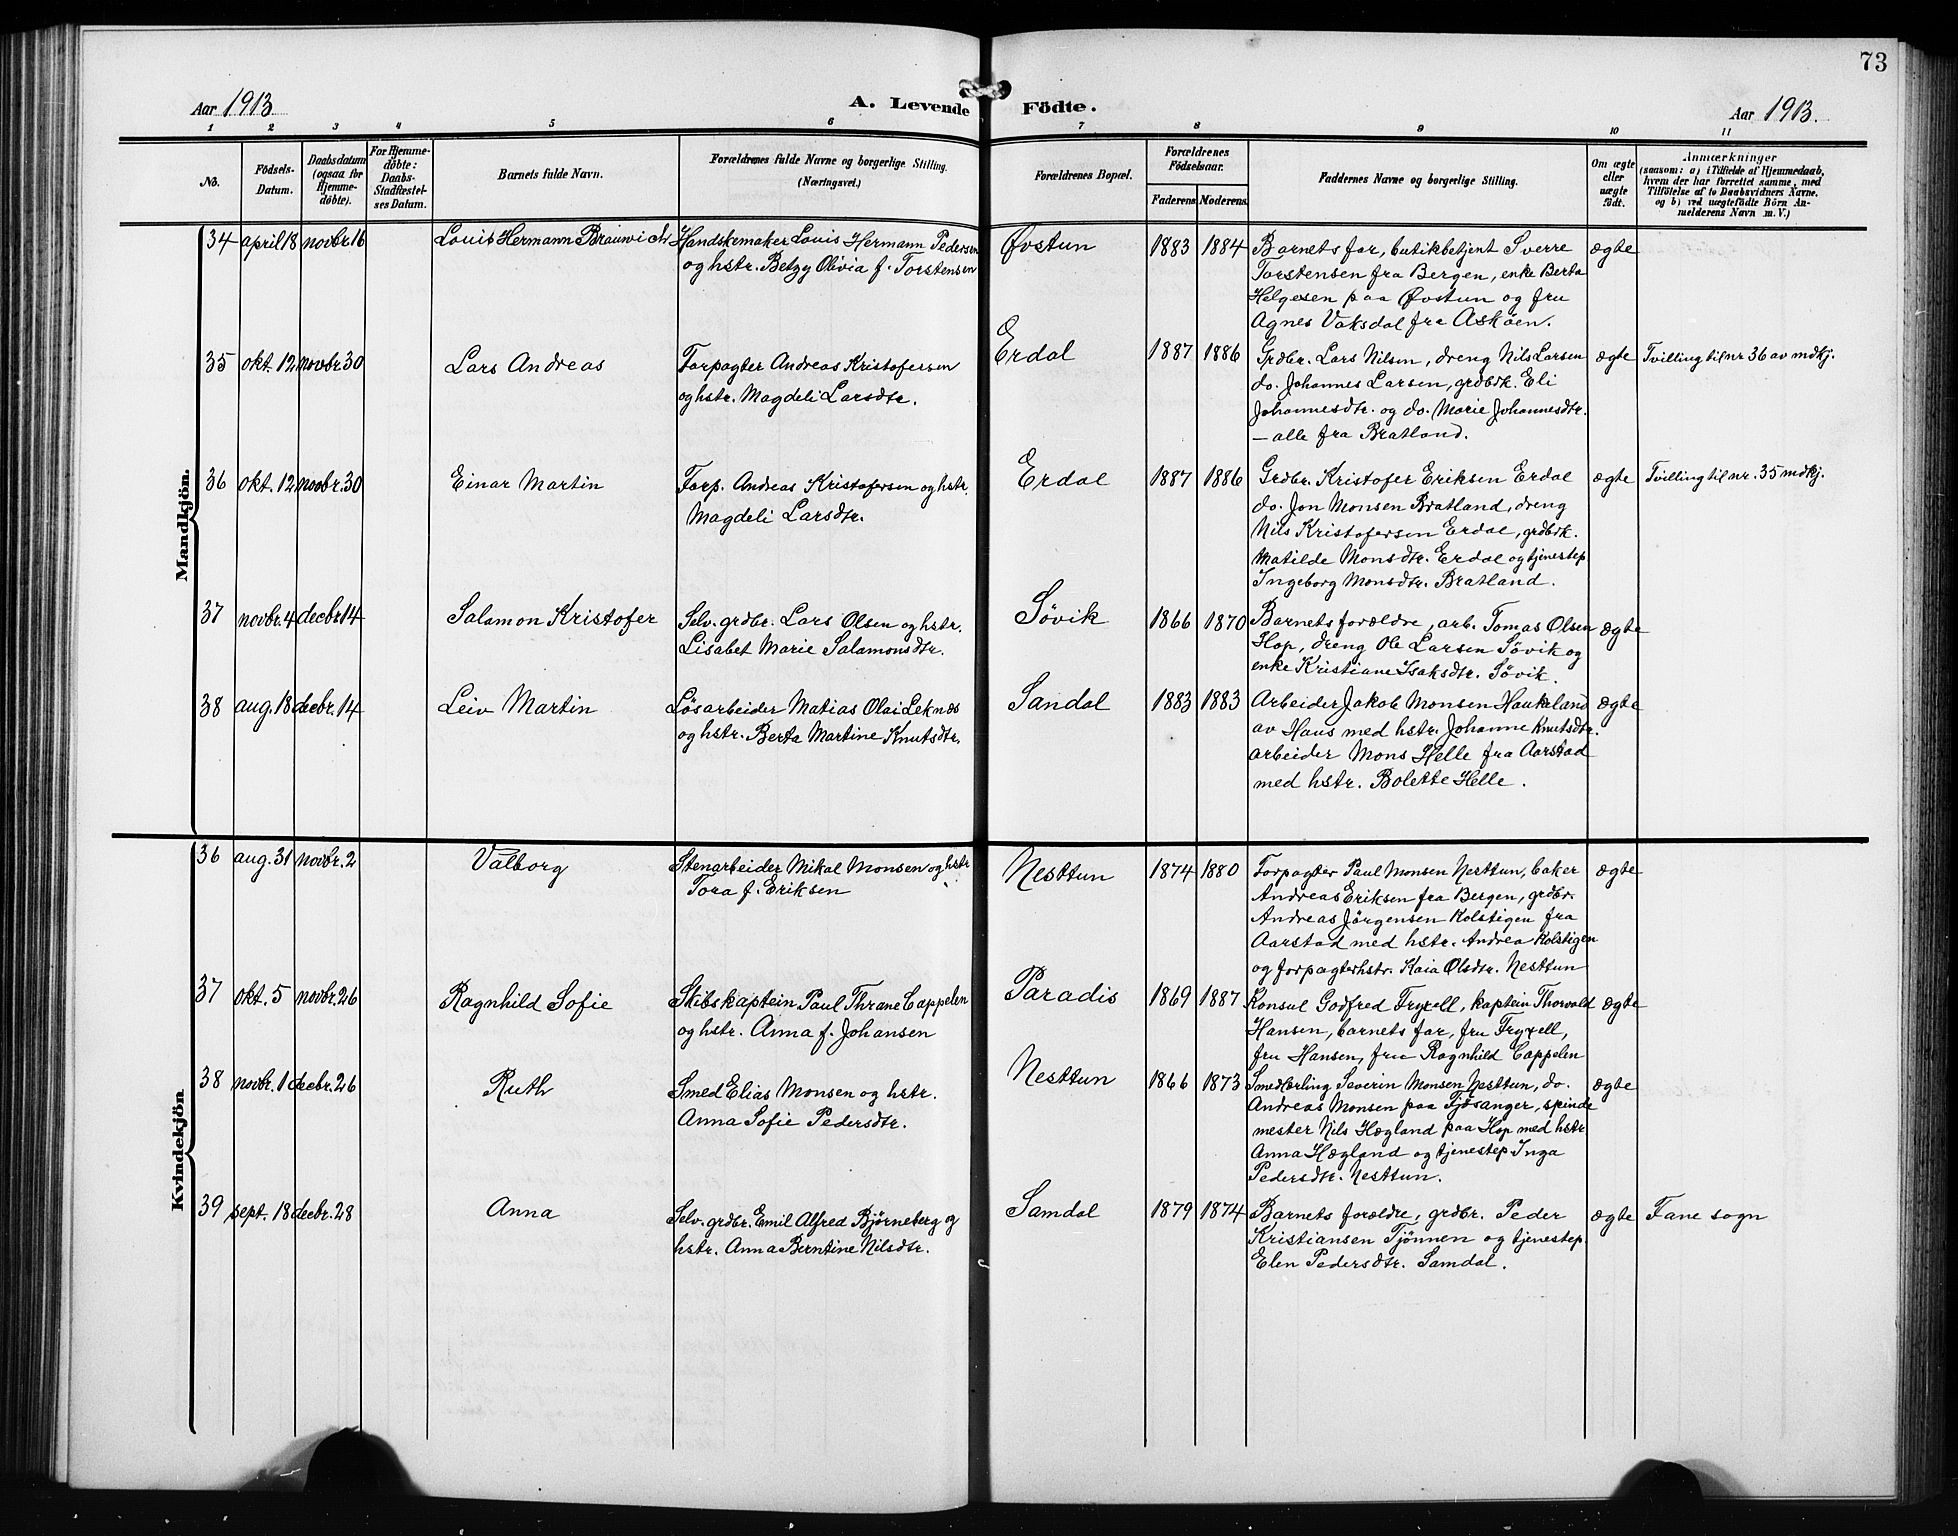 73
Aar 1913
A. Levende Födte.
Aar 1913.
1 2 3 4 5 6 7 8 9 10 11
No.
Födsels-
Datum.
Daabsdatum
(ogsaa for
Hjemme-
döbte).
For Hjemme-
döbte:
Daabs-
Stadfæstel-
ses Datum.
Barnets fulde Navn.
Forældrenes fulde Navne og borgerlige Stilling.
(Næringsvei.)
Forældrenes Bopæl.
Forældrenes
Födselsaar.
Faderens Moderens
Faddernes Navne og borgerlige Stilling.
Om ægte
eller
uægte
födt.
Anmærkninger
(saasom: a) i Tilfælde af Hjemmedaab,
hvem der har forrettet samme, med
Tilföielse af to Daabsvidners Navne,
og b) ved uægtefödte Börn An-
melderens Navn m. V.)
Mandkjön.
34 april 18 novbr. 16 Louis Hermann Brauwich
Handskemaker Louis Hermann Pedersen
og hstr. Betzy Olivia f. Torstensen
Øvstun 1883 1884
Barnets far, butikbetjent Sverre
Torstensen fra Bergen, enke Berta
Helgesen paa Øvstun og fru
Agnes Vaksdal fra Askøen.
ægte
35 okt. 12 novbr. 30 Lars Andreas
Forpagter Andreas Kristofersen
og hstr. Magdeli Larsdtr.
Erdal 1887 1886
Grdbr. Lars Nilsen, dreng Nils Larsen
do. Johannes Larsen, grdbdk. Eli
Johannesdtr. og do. Marie Johannesdtr.
– alle fra Bratland.
ægte Tvilling til nr 36 av mdkj.
36 okt. 12 novbr. 30 Einar Martin
Forp. Andreas Kristofersen og hstr.
Magdeli Larsdtr.
Erdal 1887 1886
Grdbr. Kristofer Eriksen Erdal
do. Jon Monsen Bratland, dreng
Nils Kristofersen Erdal, grdbdk.
Matilde Monsdtr. Erdal og tjenestep.
Ingeborg Monsdtr. Bratland.
ægte Tvilling til nr. 35 mdkj.
37 novbr. 4 decbr. 14 Salamon Kristofer
Selv. grdbr. Lars Olsen og hstr.
Lisabet Marie Salamonsdtr.
Søvik 1866 1870
Barnets forældre, arb. Tomas Olsen
Hop, dreng Ole Larsen Søvik og
enke Kristiane Isaksdtr. Søvik.
ægte
38 aug. 18 decbr. 14 Leiv Martin
Løsarbeider Matias Olai Leknes
og hstr. Berta Martine Knutsdtr.
Sandal 1883 1883
Arbeider Jakob Monsen Haukeland
av Haus med hstr. Johanne Knutsdtr.
arbeider Mons Helle fra Aarstad
med hstr. Bolette Helle.
ægte
Kvindekjön
36 aug. 31 novbr. 2 Valborg
Stenarbeider Mikal Monsen og hstr.
Tora f. Eriksen
Nesttun 1874 1880
Forpagter Paul Monsen Nesttun, baker
Andreas Eriksen fra Bergen, grdbr.
Andreas Jörgensen Kolstigen fra
Aarstad med hstr. Andrea Kolstigen
og forpagterhstr. Kaia Olsdtr. Nesttun
ægte
37 okt. 5 novbr. 26 Ragnhild Sofie
Skibskaptein Paul Thrane Cappelen
og hstr. Anna f. Johansen
Paradis 1869 1887
Konsul Godfred Fryxell, kaptein Thorvald
Hansen, barnets far, fru Fryxell,
fru Hansen, fru Ragnhild Cappelen
ægte
38 novbr. 1 decbr. 26 Ruth
Smed Elias Monsen og hstr.
Anna Sofie Pedersdtr.
Nesttun 1866 1873
Smedlærling Severin Monsen Nesttun, do.
Andreas Monsen paa Fjøsanger, spinde
mester Nils Hægland paa Hop med hstr
Anna Hægland og tjenestep Inga
Pedersdtr. Nesttun.
ægte
39 sept. 18 decbr. 28 Anna
Selv. grdbr. Emil Alfred Bjørneberg og
hstr. Anna Berntine Nilsdtr.
Samdal 1879 1874
Barnets forældre, grdbr. Peder
Kristiansen Tjønnen og tjenestep.
Elen Pedersdtr. Samdal.
ægte Fane sogn